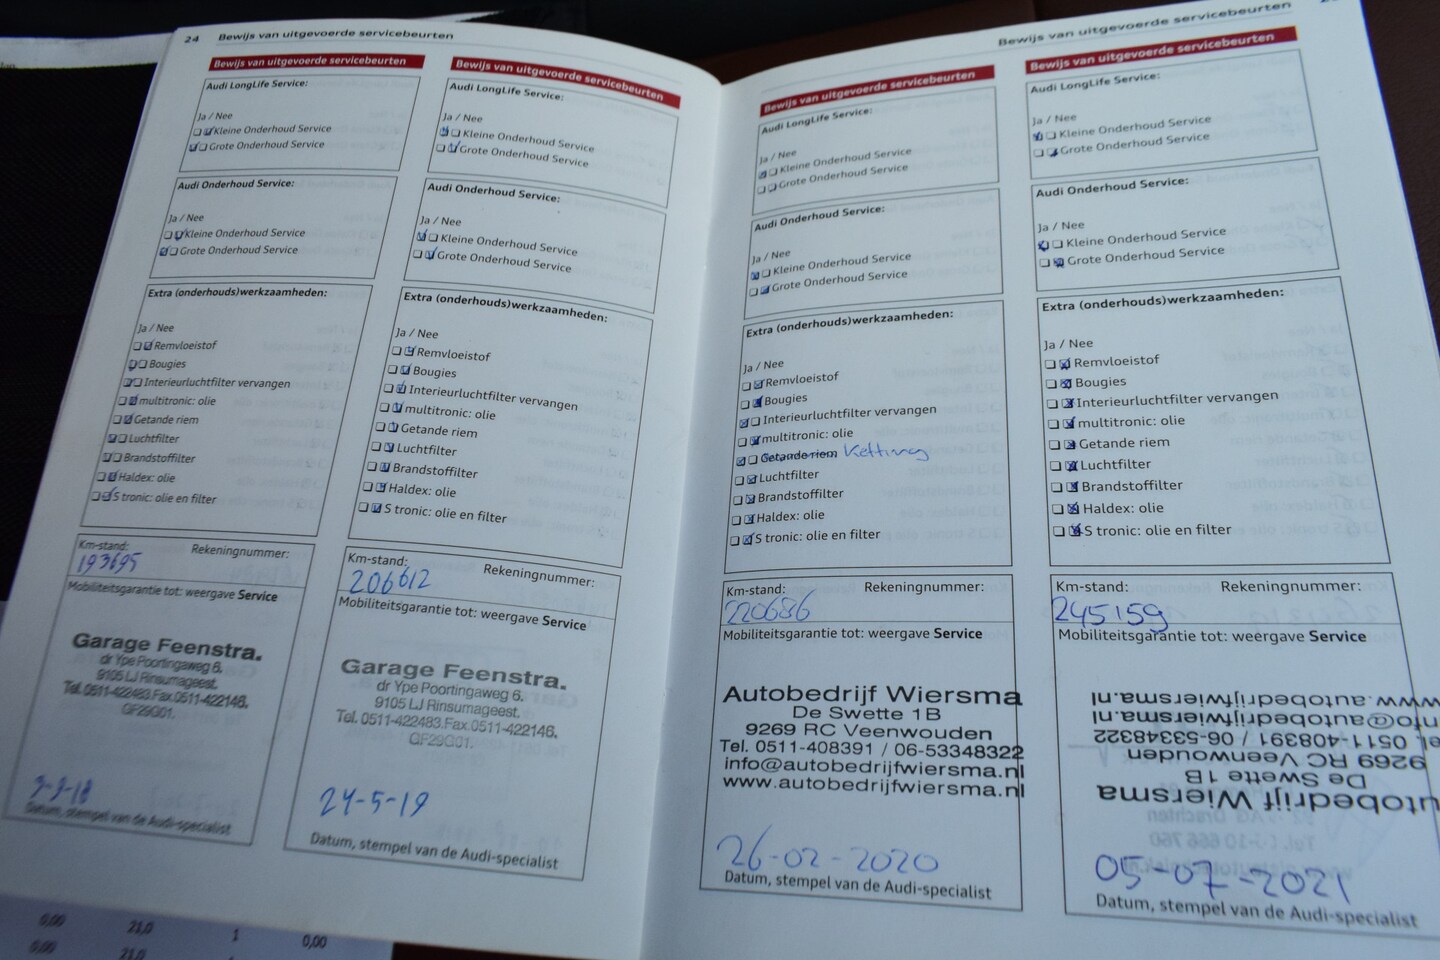 24 Bewijs van uitgevoerde servicebeurten
Bewijs van uitgevoerde servicebeurten
Audi LongLife Service:
Ja / Nee
Kleine Onderhoud Service
Grote Onderhoud Service
Audi Onderhoud Service:
Ja / Nee
Kleine Onderhoud Service
Grote Onderhoud Service
Extra (onderhouds)werkzaamheden:
Ja / Nee
Remvloeistof
Bougies
Interieurluchtfilter vervangen
multitronic: olie
Getande riem
Luchtfilter
Brandstoffilter
Haldex: olie
S tronic: olie en filter
Km-stand: Rekeningnummer:
193695
Mobiliteitsgarantie tot: weergave Service
Garage Feenstra.
dr Ype Poortingaweg 6.
9105 LJ Rinsumageest.
Tel. 0511-422483.Fax.0511-422146.
GF29G01.
Datum, stempel van de Audi-specialist
Bewijs van uitgevoerde servicebeurten
Audi LongLife Service:
Ja / Nee
Kleine Onderhoud Service
Grote Onderhoud Service
Audi Onderhoud Service:
Ja / Nee
Kleine Onderhoud Service
Grote Onderhoud Service
Extra (onderhouds)werkzaamheden:
Ja / Nee
Remvloeistof
Bougies
Interieurluchtfilter vervangen
multitronic: olie
Getande riem
Luchtfilter
Brandstoffilter
Haldex: olie
S tronic: olie en filter
Km-stand: Rekeningnummer:
206612
Mobiliteitsgarantie tot: weergave Service
Garage Feenstra.
dr Ype Poortingaweg 6.
9105 LJ Rinsumageest.
Tel. 0511-422483.Fax.0511-422146.
GF29G01.
24-5-19
Datum, stempel van de Audi-specialist
Bewijs van uitgevoerde servicebeurten
Bewijs van uitgevoerde servicebeurten
Audi LongLife Service:
Ja / Nee
Kleine Onderhoud Service
Grote Onderhoud Service
Audi Onderhoud Service:
Ja / Nee
Kleine Onderhoud Service
Grote Onderhoud Service
Extra (onderhouds)werkzaamheden:
Ja / Nee
Remvloeistof
Bougies
Interieurluchtfilter vervangen
multitronic: olie
Getande riem Ketting
Luchtfilter
Brandstoffilter
Haldex: olie
S tronic: olie en filter
Km-stand: Rekeningnummer:
220686
Mobiliteitsgarantie tot: weergave Service
Autobedrijf Wiersma
De Swette 1B
9269 RC Veenwouden
Tel. 0511-408391 / 06-53348322
info@autobedrijfwiersma.nl
www.autobedrijfwiersma.nl
26-02-2020
Datum, stempel van de Audi-specialist
Bewijs van uitgevoerde servicebeurten
Audi LongLife Service:
Ja / Nee
Kleine Onderhoud Service
Grote Onderhoud Service
Audi Onderhoud Service:
Ja / Nee
Kleine Onderhoud Service
Grote Onderhoud Service
Extra (onderhouds)werkzaamheden:
Ja / Nee
Remvloeistof
Bougies
Interieurluchtfilter vervangen
multitronic: olie
Getande riem
Luchtfilter
Brandstoffilter
Haldex: olie
S tronic: olie en filter
Km-stand: Rekeningnummer:
245159
Mobiliteitsgarantie tot: weergave Service
utobedrijf Wiersma
De Swette 1B
9269 RC Veenwouden
el. 0511-408391 / 06-53348322
nfo@autobedrijfwiersma.nl
www.autobedrijfwiersma.nl
05-07-2021
Datum, stempel van de Audi-specialist
0,00 21,0 1 0,00
0,00 21,0